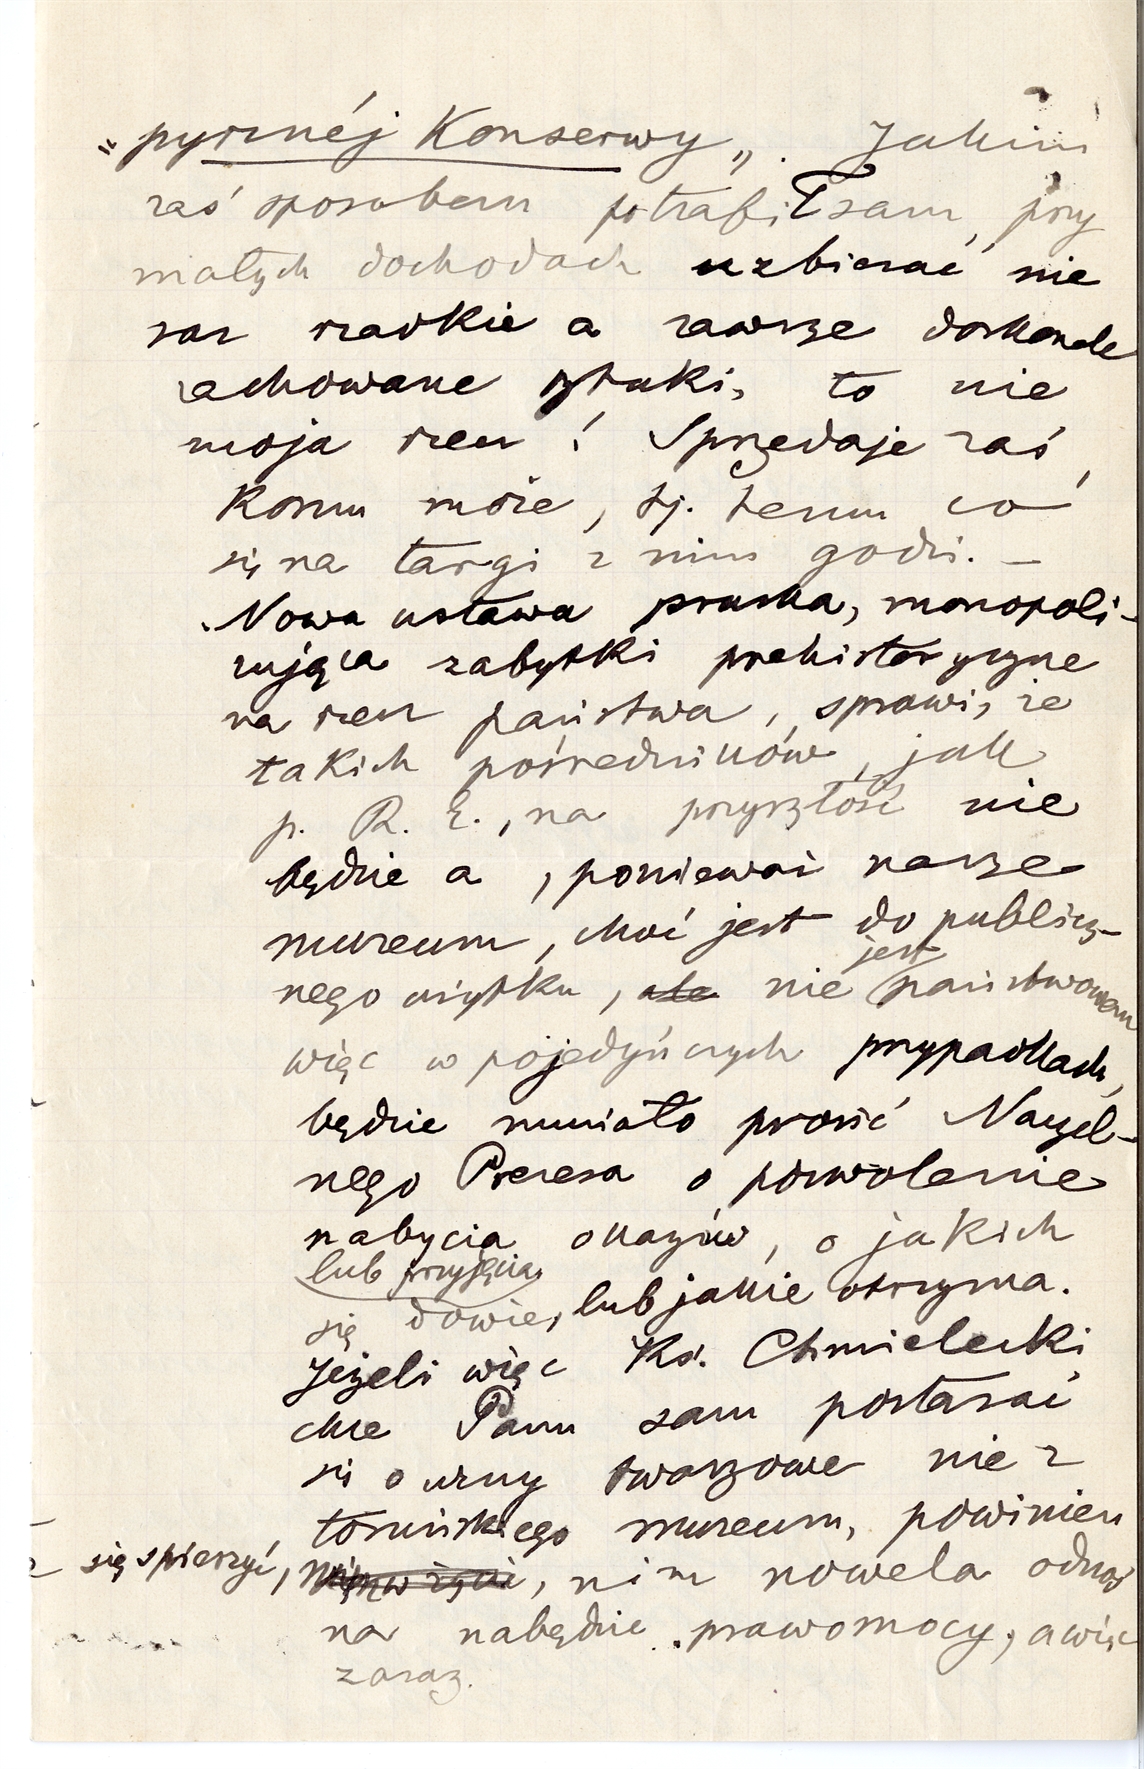 „pysznéj Konserwy”. Jakim
zaś sposobem potrafił sam, przy
małych dochodach uzbierać nie
raz rzadkie a zawsze doskonale
zachowane sztuki, to nie
moja rzecz! Sprzedaje zaś,
komu może, tj. temu co
się na targi z nim godzi. –
Nowa ustawa pruska, monopoli-
zująca zabytki prehistoryczne
na rzecz państwa, sprawi, że
takich pośredników, jak
p. R. E., na przyszłość nie
będzie a, ponieważ nasze
muzeum, choć jest do publicz-
nego użytku, ale nie jest państwowem
więc w pojedyńczych przypadkach,
będzie musiało prosić Naczel-
nego Prezesa o pozwolenie
nabycia okazów, o jakich
lub przyjęcia
się dowie, lub jakie otrzyma.
Jeżeli więc Ks. Chmielecki
chce Panu sam postarać
się o urny twarzowe nie z
toruńskiego muzeum, powinien
się spieszyć, nim nowela odnoś
na nabędzie prawomocy, a więc
zaraz.